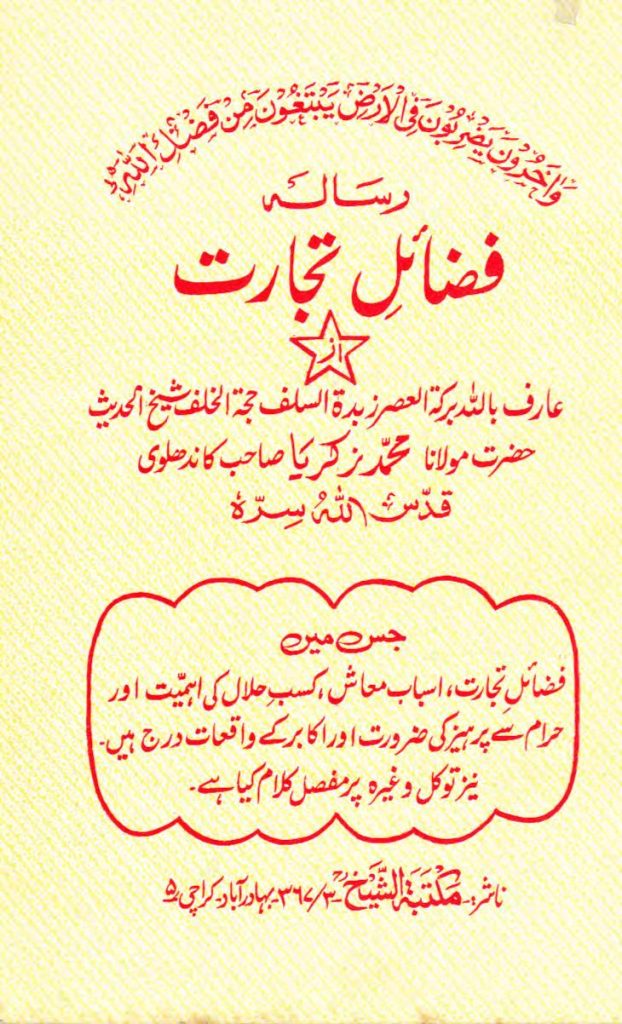 وَاٰخَرُوْنَ يَضْرِبُوْنَ فِى الْاَرْضِ يَبْتَغُوْنَ مِنْ فَضْلِ اللّٰهِ
رسالہ
فضائلِ تجارت
از
عارف باللہ برکۃ العصر زبدۃ السلف حجۃ الخلف شیخ الحدیث
حضرت مولانا محمّد زکریا صاحب کاندھلوی
قدّس اللہُ سِرّہٗ
جس میں
فضائلِ تجارت، اسباب معاش، کسبِ حلال کی اہمیّت اور
حرام سے پرہیز کی ضرورت اور اکابر کے واقعات درج ہیں۔
نیز توکل وغیرہ پر مفصل کلام کیا ہے۔
ناشر:۔ مکتبۃ الشَّیخ ؒ ۳/۳۶۷۔ بہادر آباد۔ کراچی ۵